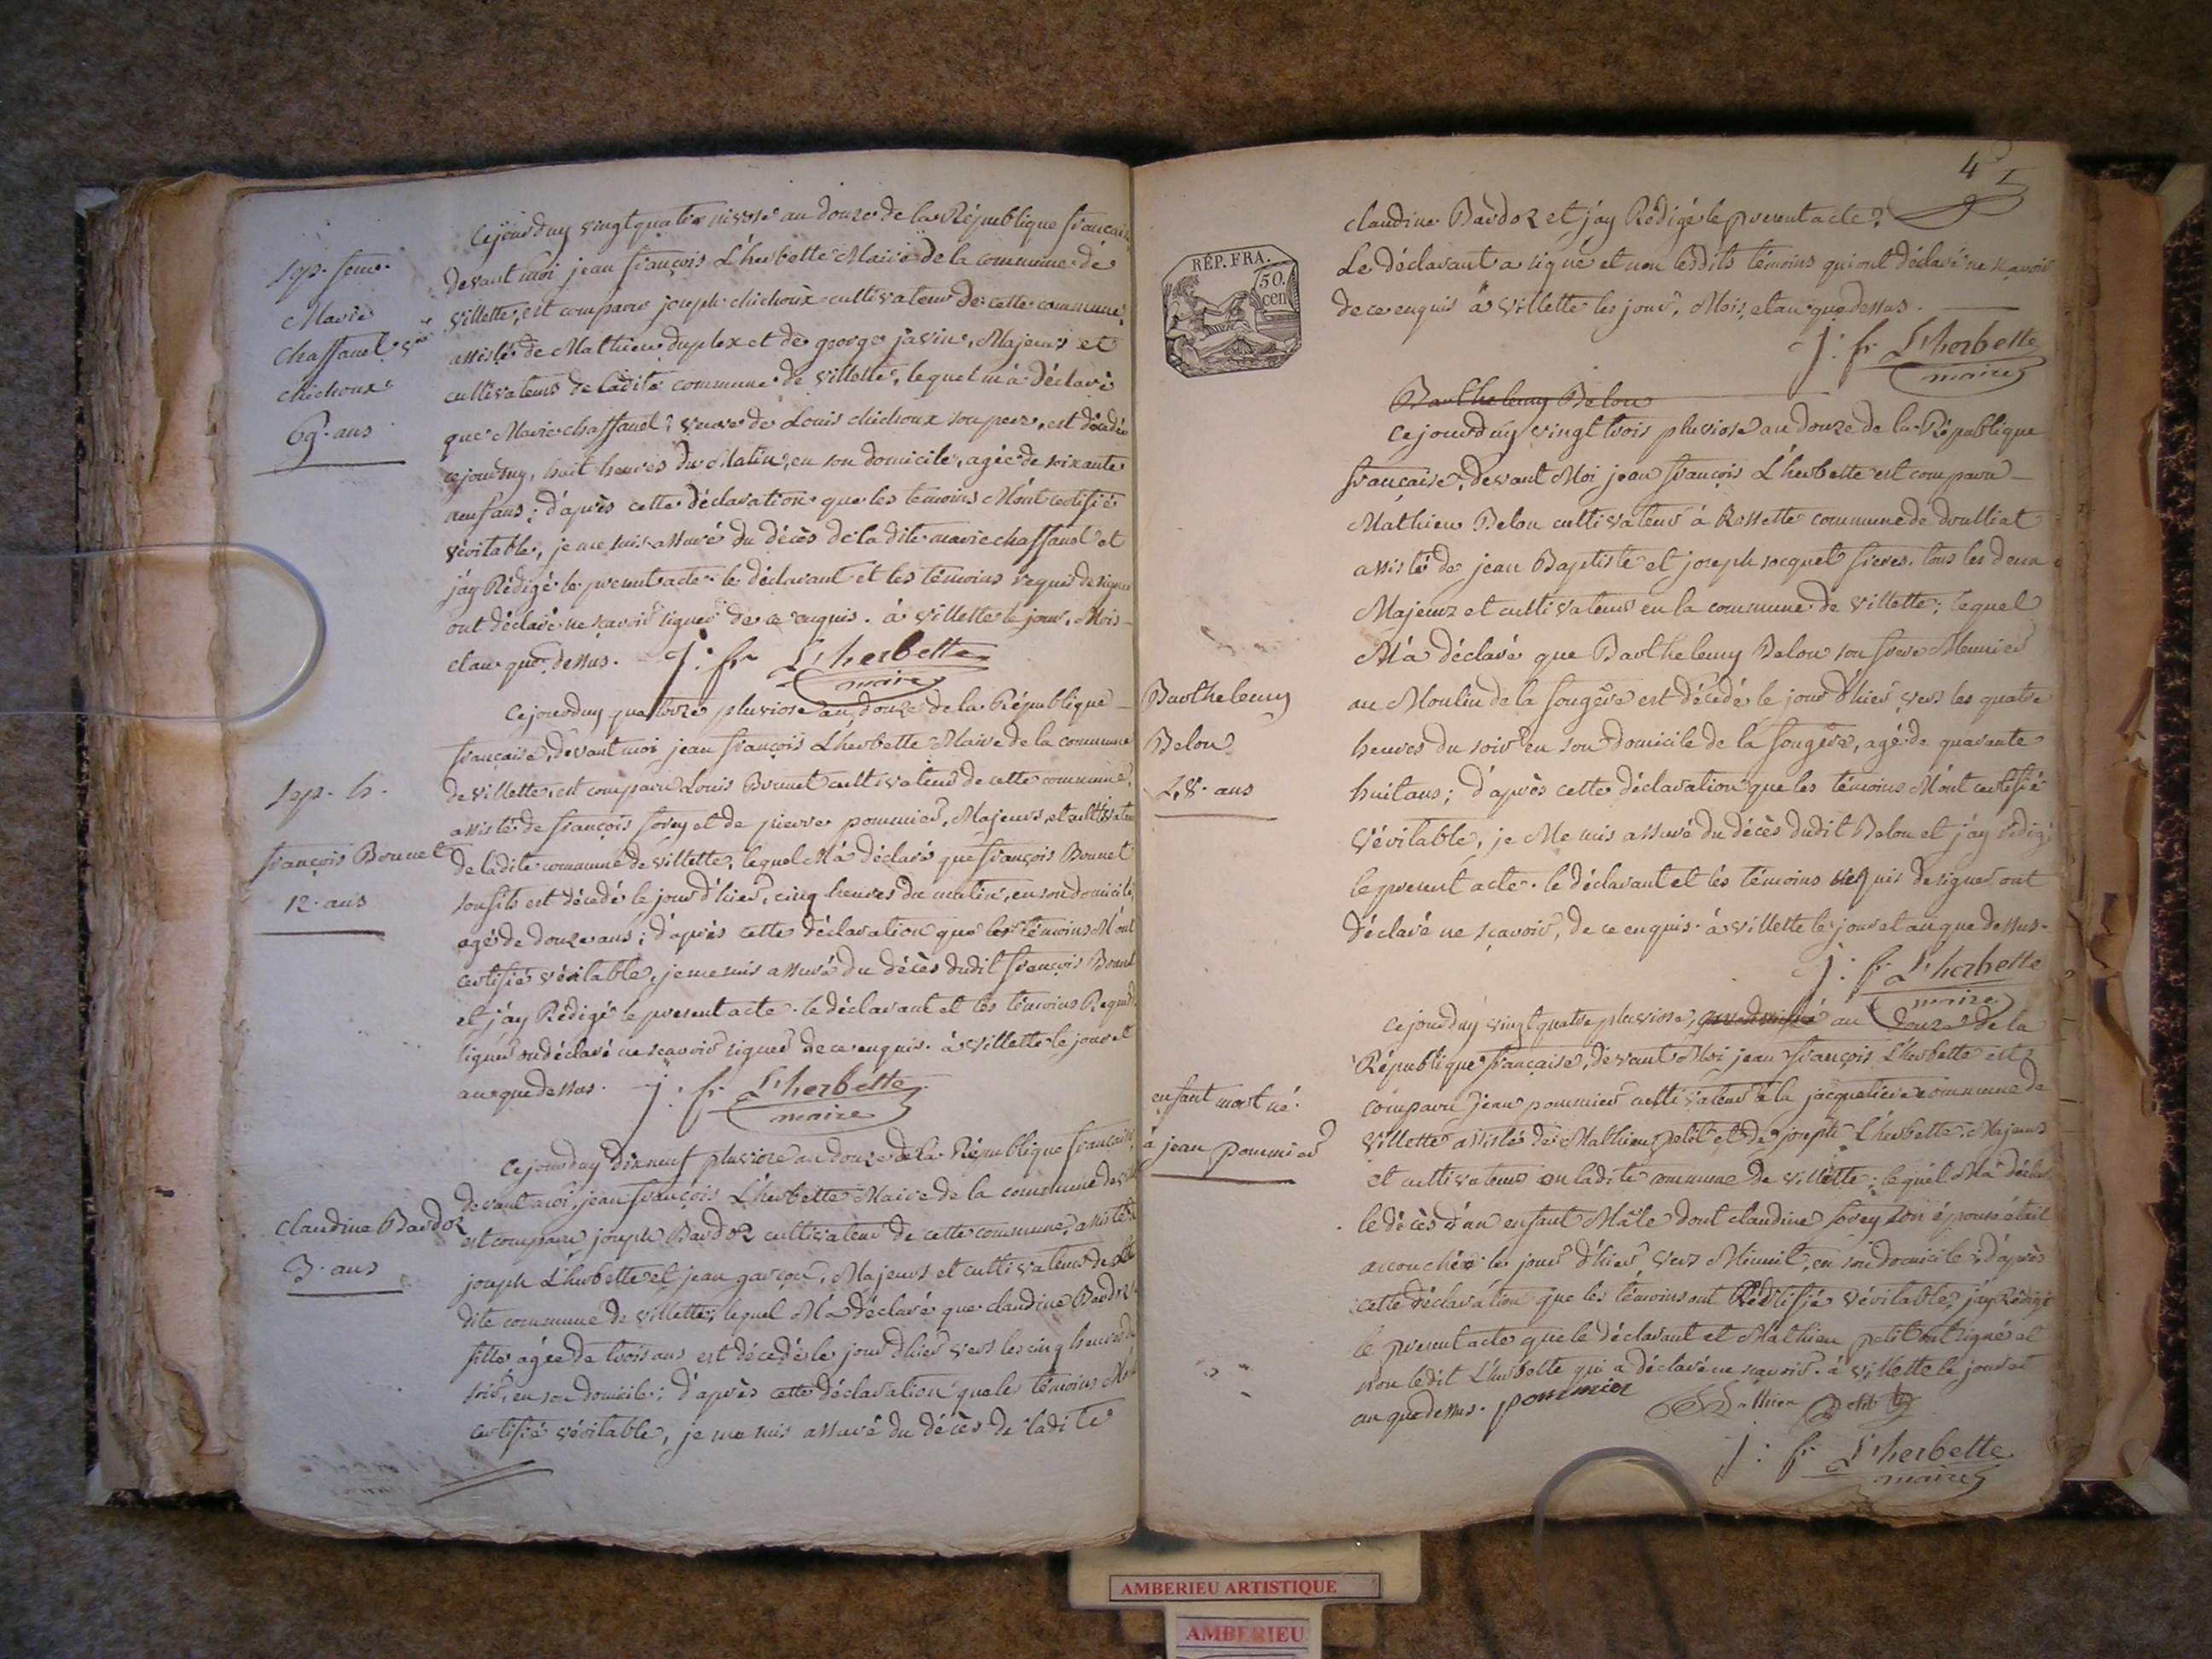 Sép. feme.
Marie
Chaffauel vve
chichoux
69. ans
Cejourd'uy vingt quatre nivose an douze de la République francaise
devant moi jean françois L'herbette Maire de la commune de
villette, est comparu joseph chichoux cultivateur de cette commune,
assisté de Mathieu duplex et de george javin, Majeurs et
cultivateurs de ladite commune de villette, lequel m'a déclaré
que Marie chaffauel, veuve de Louis chichoux son pere, est décédée
cejourduy, huit heures du Matin, en son domicile, agée de soixante
neuf ans; d'après cette déclaration que les temoins M'ont certifié
véritable, je me suis assuré du décès de la dite marie chaffauel et
j'ay Rédigé le present acte. le déclarant et les témoins requis de signer
ont déclaré ne sçavoir signer de ce enquis. à villette le jour, Mois
et an que dessus. J: fr L'herbette
maire
Sép. h.
françois Bonnet
12. ans
Cejourduy quatorze pluviose an douze de la République
française, devant moi jean françois L'herbette Maire de la commune
de villette, est comparu Louis Bonnet cultivateur de cette commune,
assisté de françois sorey et de pierre pommier, Majeurs, et cultivateurs
de ladite commune de villette, lequel M'a déclaré que françois Bonnet
son fils est décédé le jour d'hier, cinq heures du matin, en son domicile,
agé de douze ans; d'après cette déclaration que les témoins M'ont
certifié véritable, je me suis assuré du décès dudit françois Bonnet
et j'ay Rédigé le present acte. le déclarant et les témoins Requis de
signer ont déclaré ne sçavoir signer de ce enquis. à villette le jour et
an que dessus. j: fr L'herbette
maire
claudine Baudoz
3. ans
Cejourduy dixneuf pluviose an douze de la République française,
devant moi, jean françois L'herbette Maire de la commune de
est comparu joseph Baudoz cultivateur de cette commune, assisté de
joseph L'herbette et jean garçon, Majeurs et cultivateurs de la
dite commune de villette, lequel M'a déclaré que claudine Baudoz sa
fille agée de trois ans est décédée le jour d'hier vers les cinq heures du
soir, en son domicile; d'après cette déclaration que les témoins M'ont
certifié véritable, je me suis assuré du décès de ladite
4
RÉP. FRA.
50.
cen
claudine Baudoz et j'ay Rédigé le present acte.
Le déclarant a signé et non lesdits témoins qui ont déclaré ne sçavoir
de ce enquis à villette les jour, Mois, et an que dessus.
j: fr L'herbette
maire
Barthelemy Belou
Cejourduy vingt trois pluviose an douze de la République
française, devant Moi jean françois L'herbette est comparu
Mathieu Belou cultivateur à Rossette commune de doulliat
assisté de jean Baptiste et joseph socquet freres. tous les deux
Majeurs et cultivateurs en la commune de villette; lequel
M'a déclaré que Barthelemy Belou son frere Meunier
au Moulin de la fougère est décédé le jour d'hier vers les quatre
heures du soir en son domicile de la fougère, agé de quarante
huit ans; d'après cette déclaration que les témoins M'ont certifié
Véritable, je Me suis assuré du décès dudit Belou et j'ay rédigé
le present acte. le déclarant et les témoins requis de signer ont
déclaré ne sçavoir, de ce enquis. à villette le jour et an que dessus.
j: fr L'herbette
maire
Barthelemy
Belou
48. ans
enfant mort né.
à jean pommier
Cejourduy vingt quatre pluviose, an douze de la
République française, devant Moi jean françois L'herbette est
comparu jean pommier cultivateur à la jacqueliere commune de
Villette assisté de Mathieu petit et de joseph L'herbette Majeurs
et cultivateurs en ladite commune de villette; lequel M'a déclaré
le décès d'un enfant Mâle dont claudine sorey son épouse était
accouchée le jour d'hier vers Minuit, en son domicile; d'après
cette déclaration que les témoins ont Certifié véritable, j'ay Rédigé
le present acte que le déclarant et Mathieu petit ont signé et
non ledit L'herbette qui a déclaré ne sçavoir. à villette le jour et
an que dessus. pommier Mathieu petit
j: fr L'herbette
maire
AMBERIEU ARTISTIQUE
AMBERIEU